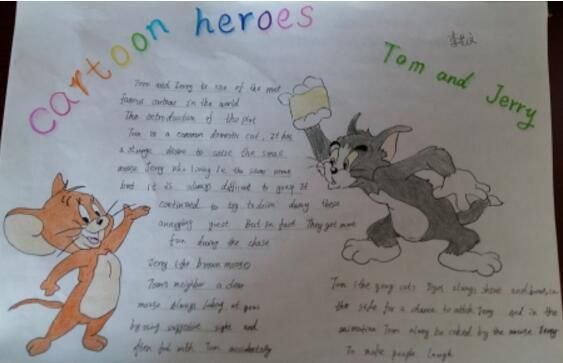 cartoon heroes
Tom and Jerry
Tom and Jerry is one of the most
famous cartoons in the world
The introduction of the plot
Tom is a common domestic cat, It has
a strong desire to seize the small
mouse Jerry who living in the same
but it is always difficult to grasp It
continued to try to drive away these
annoying guest But in fact They get more
fun during the chase
Jerry (the brown mouse)
Tom's neighbor a dear
mouse Always looking at you
by using supportive sight and
often find with Tom accidentally
Tom (the gray cat) Eyes always shine and
the side for a chance to attack Jerry and in the
animation Tom always be by the mouse Jerry
To make people laugh